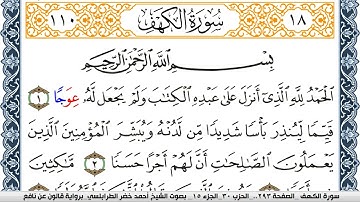 ١١٠ سورة الكهف ١٨
بِسْمِ اللَّهِ الرَّحْمَٰنِ الرَّحِيمِ
الْحَمْدُ لِلَّهِ الَّذِي أَنزَلَ عَلَىٰ عَبْدِهِ الْكِتَابَ وَلَمْ يَجْعَل لَّهُ عِوَجًا ١
قَيِّمًا لِّيُنذِرَ بَأْسًا شَدِيدًا مِّن لَّدُنْهُ وَيُبَشِّرَ الْمُؤْمِنِينَ الَّذِينَ
يَعْمَلُونَ الصَّالِحَاتِ أَنَّ لَهُمْ أَجْرًا حَسَنًا ٢ مَّاكِثِينَ
سورة الكهف .. الصفحة ٢٩٣.. الحزب ٣٠.. الجزء ١٥ بصوت الشيخ أحمد خضر الطرابلسي.. برواية قالون عن نافع